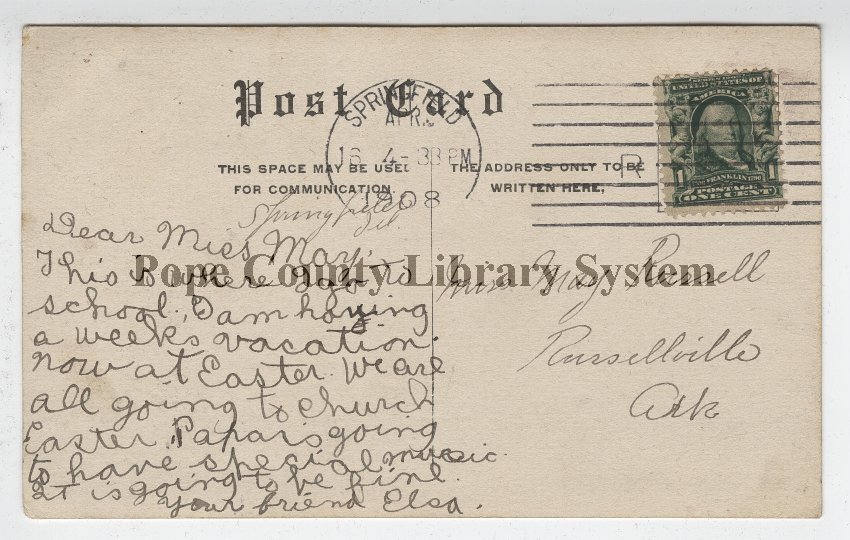 Post Card
SPRINGFIELD
APR.
16 4-38 PM
1908
R
UNITED STATES OF
AMERICA
FRANKLIN
POSTAGE
ONE CENT
THIS SPACE MAY BE USED
FOR COMMUNICATION
THE ADDRESS ONLY TO BE
WRITTEN HERE,
Springfield
Ill.
Dear Miss May,
This is where I go to
school, I am having
a weeks vacation.
now at Easter. We are
all going to church
Easter, Papa is going
to have special music.
It is going to be fine.
Your friend Elsa.
Miss May Russell
Russellville
Ark
Pope County Library System